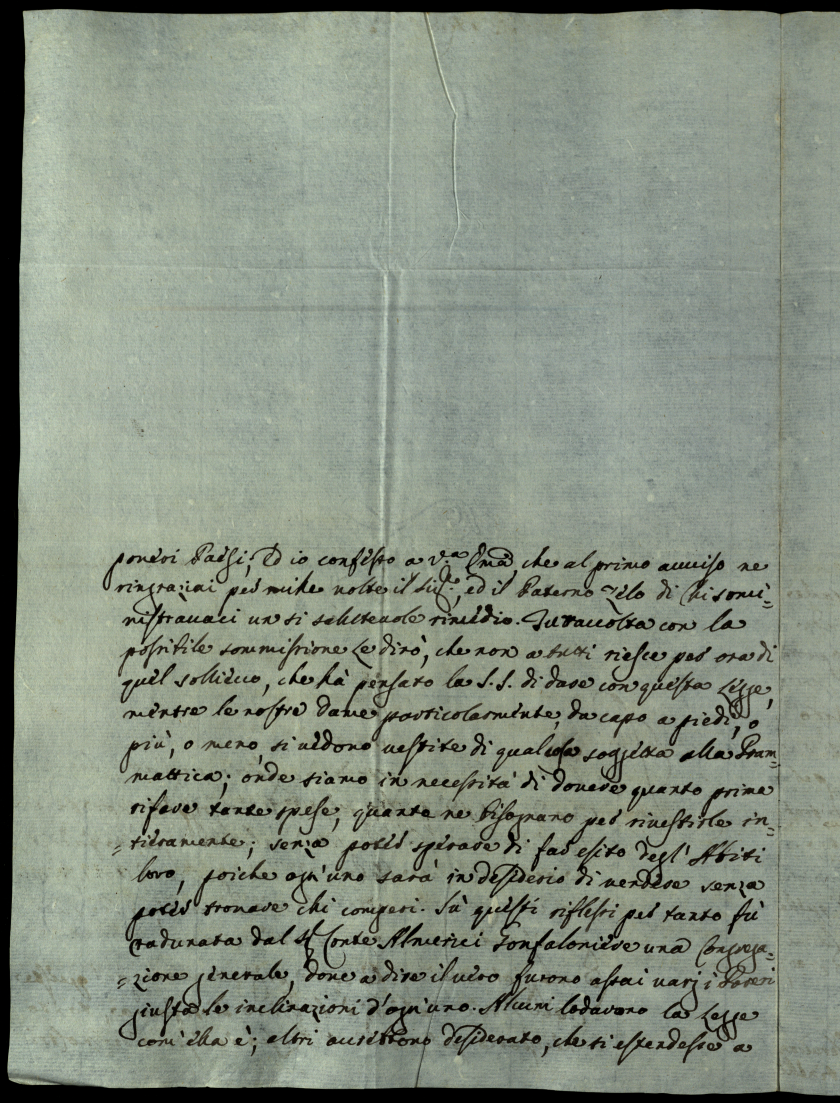 poveri Paesi; Ed io confesso a V.ra Em̃a, che al primo avviso ne
ringraziai per mille volte il Sig.re, ed il Paterno Zelo di Chi somi=
nistravaci un sì salutevole rimedio. Tuttavolta con la
possibile sommissione Le dirò, che non a tutti riesce per ora di
quel sollievo, che hà pensato la S.S. di dare con questa Legge,
mentre le nostre Dame particolarmente, da capo a piedi, o
più, o meno, si vedono vestite di qualcosa soggetta alla Pram=
mattica; onde siamo in necessità di dovere quanto prima
rifare tante spese, quante ne bisognano per rivestirle in=
=tieramente; senza poter sperare di far esito degl' Abiti
loro, poiche ogn'uno sarà in desiderio di vendere senza
poter trovare chi comperi. Sù questi riflessi per tanto fù
radunata dal Sig.r Conte Almerici Gonfaloniere una Congrega=
=zione generale, dove a dire il vero furono assai varj i Pareri
giusta le inclinazioni d'ogn'uno. Alcuni lodavano la Legge
com'ella è; altri avrebbono desiderato, che si estendesse a